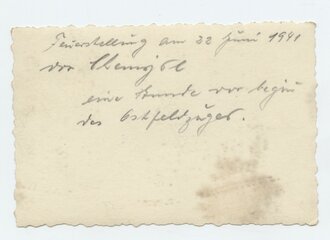 Feuerstellung am 22 Juni 1941
vor
eine Stunde vor begin
des Ostfeldzuges.